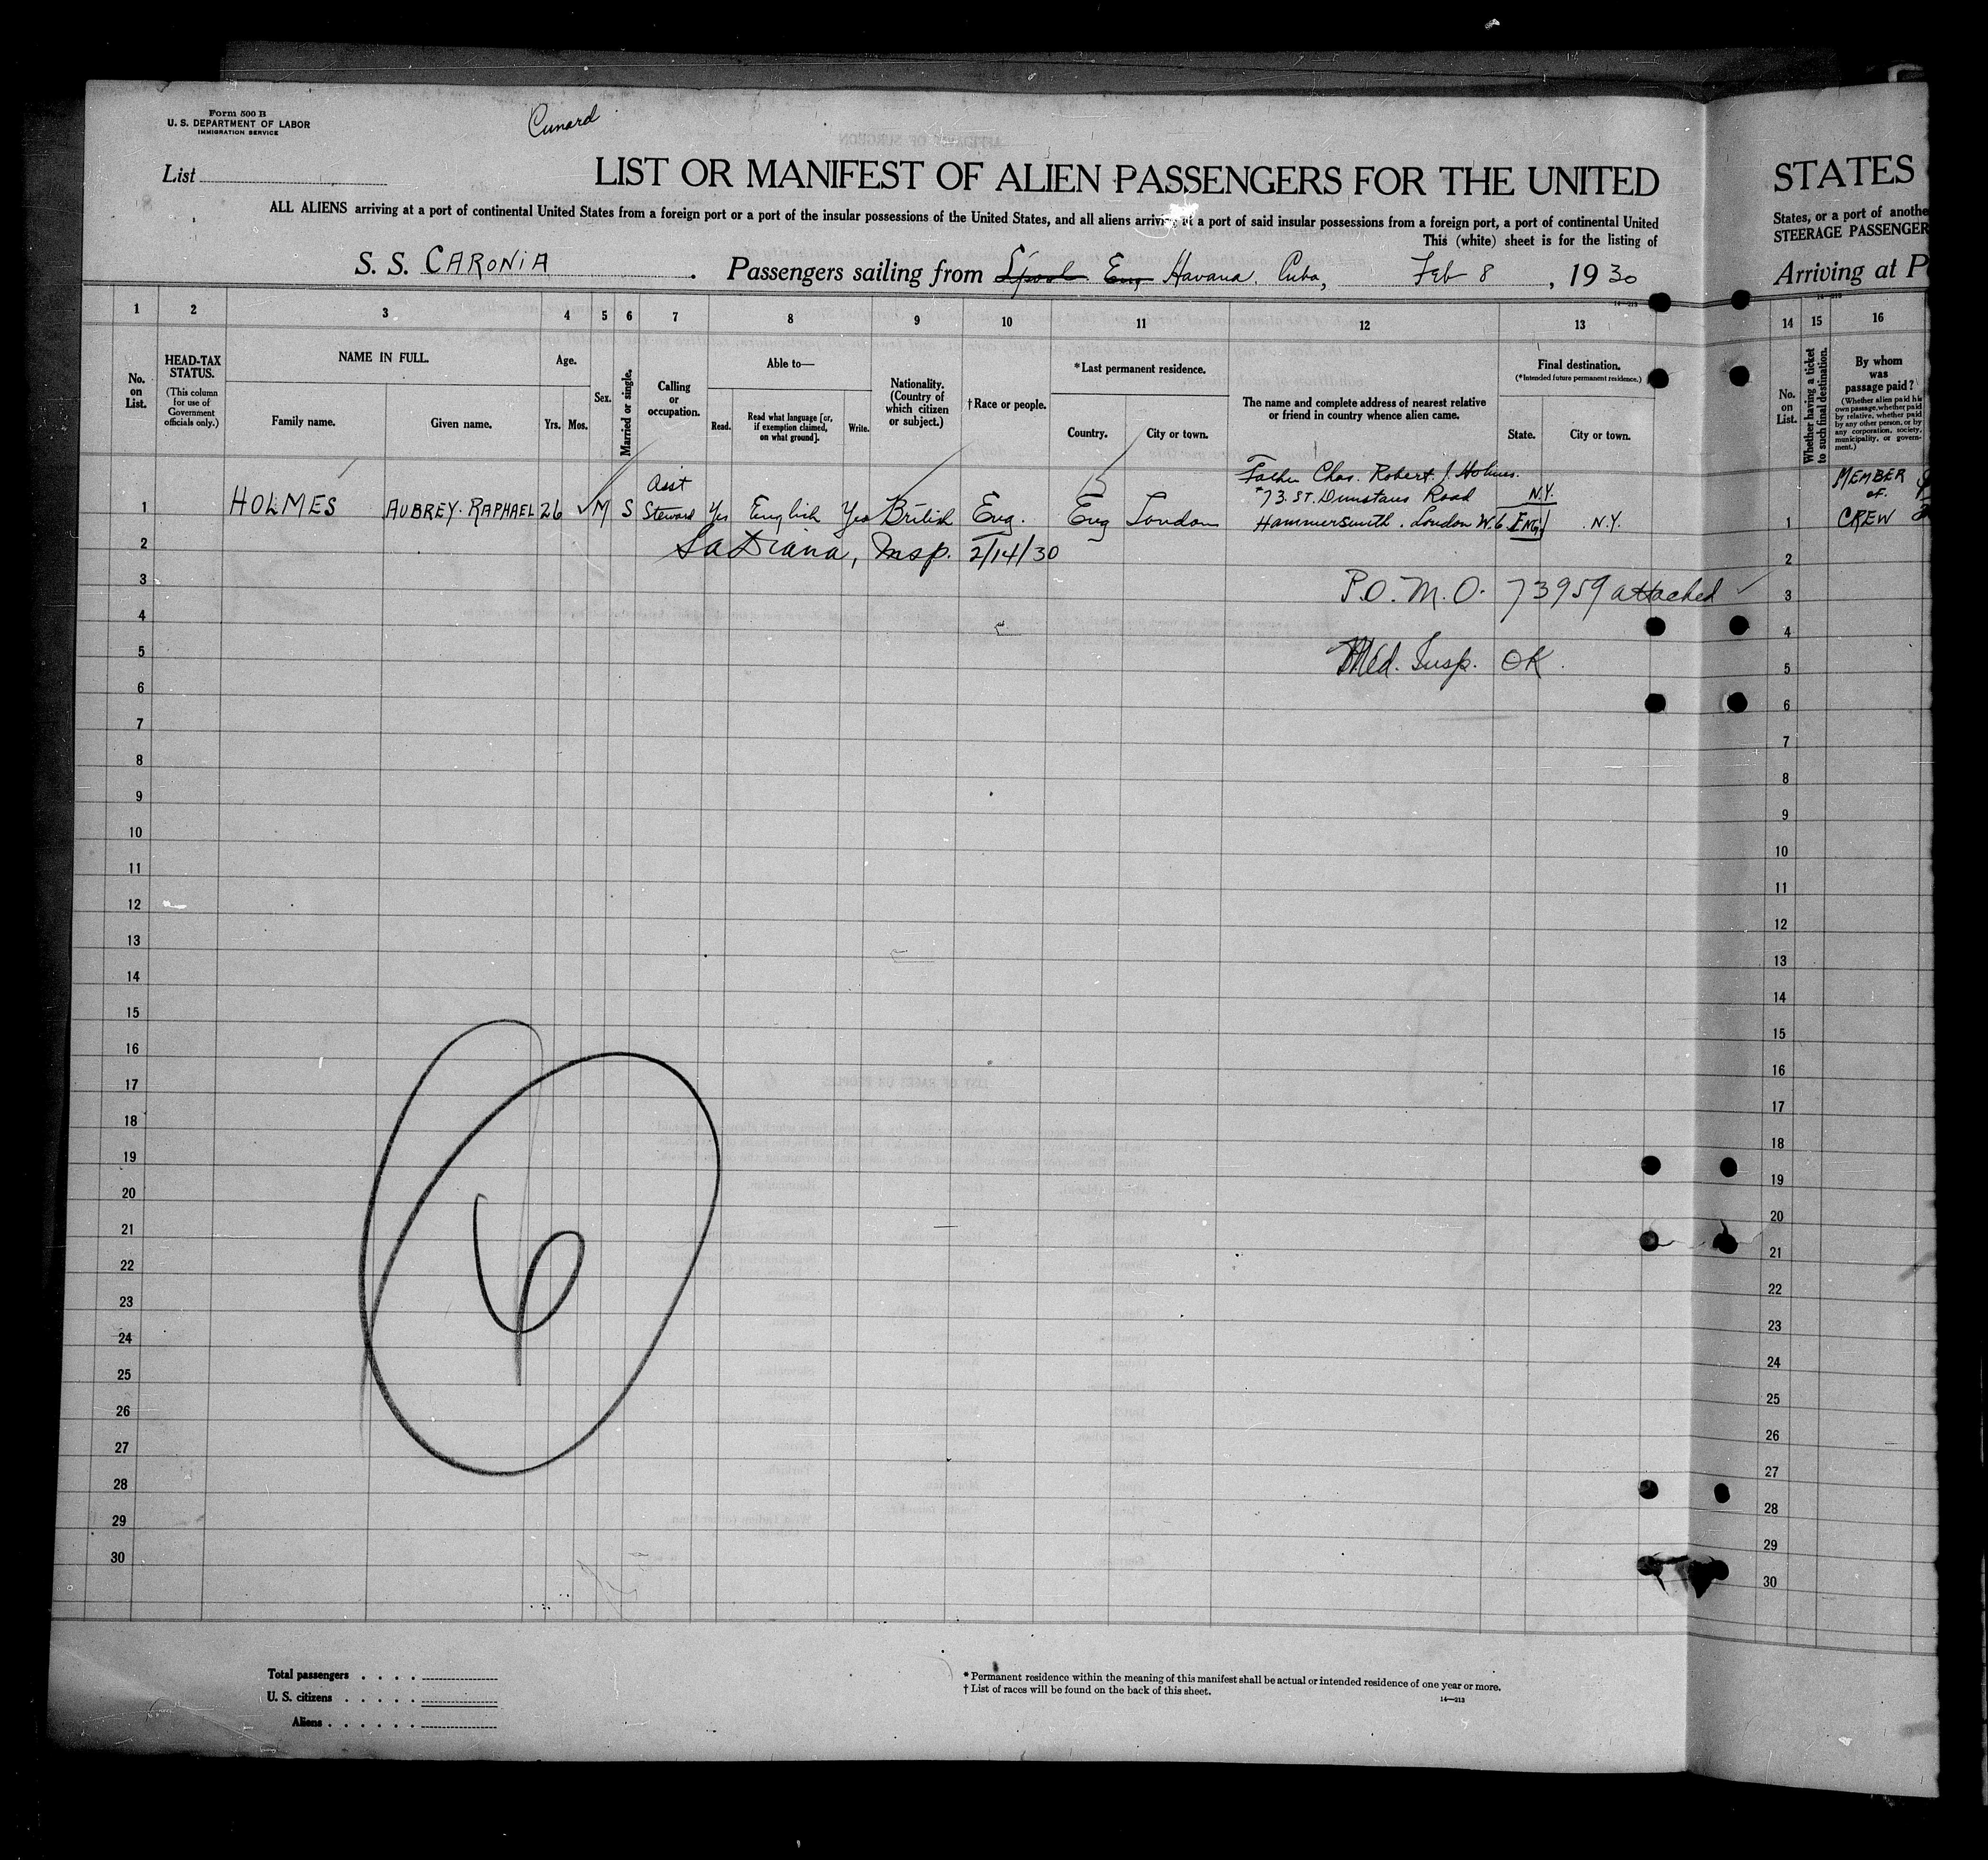 Form 500 B
U. S. DEPARTMENT OF LABOR
IMMIGRATION SERVICE
Cunard
List
LIST OR MANIFEST OF ALIEN PASSENGERS FOR THE UNITED
ALL ALIENS arriving at a port of continental United States from a foreign port or a port of the insular possessions of the United States, and all aliens arriving at a port of said insular possessions from a foreign port, a port of continental United
This (white) sheet is for the listing of
S. S. CARONIA . Passengers sailing from L'pool Eng Havana. Cuba, Feb 8 , 1930
14-213
1 2 3 4 5 6 7 8 9 10 11 12 13
No. on List.
HEAD-TAX STATUS.
(This column for use of Government officials only.)
NAME IN FULL.
Family name.
Given name.
Age.
Yrs. Mos.
Sex.
Married or single.
Calling or occupation.
Able to—
Read.
Read what language [or, if exemption claimed, on what ground].
Write.
Nationality. (Country of which citizen or subject.)
†Race or people.
*Last permanent residence.
Country.
City or town.
The name and complete address of nearest relative or friend in country whence alien came.
Final destination.
(*Intended future permanent residence.)
State.
City or town.
Father Chas. Robert J. Holmes.
Asst
73. ST. Dunstans Road N.Y.
1 HOLMES AUBREY. RAPHAEL 26 M S Steward Yes English Yes British Eng. Eng London Hammersmith. London W.6 ENG. N.Y.
2 LaDiana, Insp. 2/14/30
3 P.O. M. O. 73959 attached
4
5 Med. Insp. OK.
6
7
8
9
10
11
12
13
14
15
16
17
18
19
20
21
22
23
24
25
26
27
28
29
30
6
Total passengers
U. S. citizens
Aliens
* Permanent residence within the meaning of this manifest shall be actual or intended residence of one year or more.
† List of races will be found on the back of this sheet.
14—213
STATES
States, or a port of anothe
STEERAGE PASSENGER
Arriving at P
14 15 16
No. on List.
Whether having a ticket to such final destination.
By whom was passage paid?
(Whether alien paid his own passage, whether paid by relative, whether paid by any other person, or by any corporation, society, municipality, or government.)
MEMBER
of.
1 CREW
2
3
4
5
6
7
8
9
10
11
12
13
14
15
16
17
18
19
20
21
22
23
24
25
26
27
28
29
30